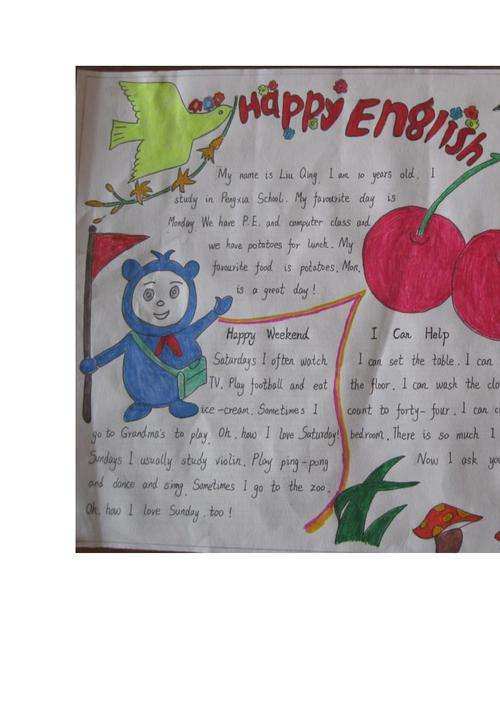 Happy English
My name is Liu Qing. I am 10 years old. I
study in Pengxia School. My favourite day is
Monday. We have P.E. and computer class and
we have potatoes for lunch. My
favourite food is potatoes. Mon.
is a great day!
Happy Weekend
Saturdays I often watch
TV. Play football and eat
ice-cream. Sometimes I
go to Grandma's to play. Oh, how I love Saturday!
Sundays I usually study violin. Play ping-pong
and dance and sing. Sometimes I go to the zoo.
Oh, how I love Sunday, too!
I Can Help
I can set the table. I can
the floor. I can wash the clo
count to forty-four. I can c
bedroom. There is so much I
Now I ask yo